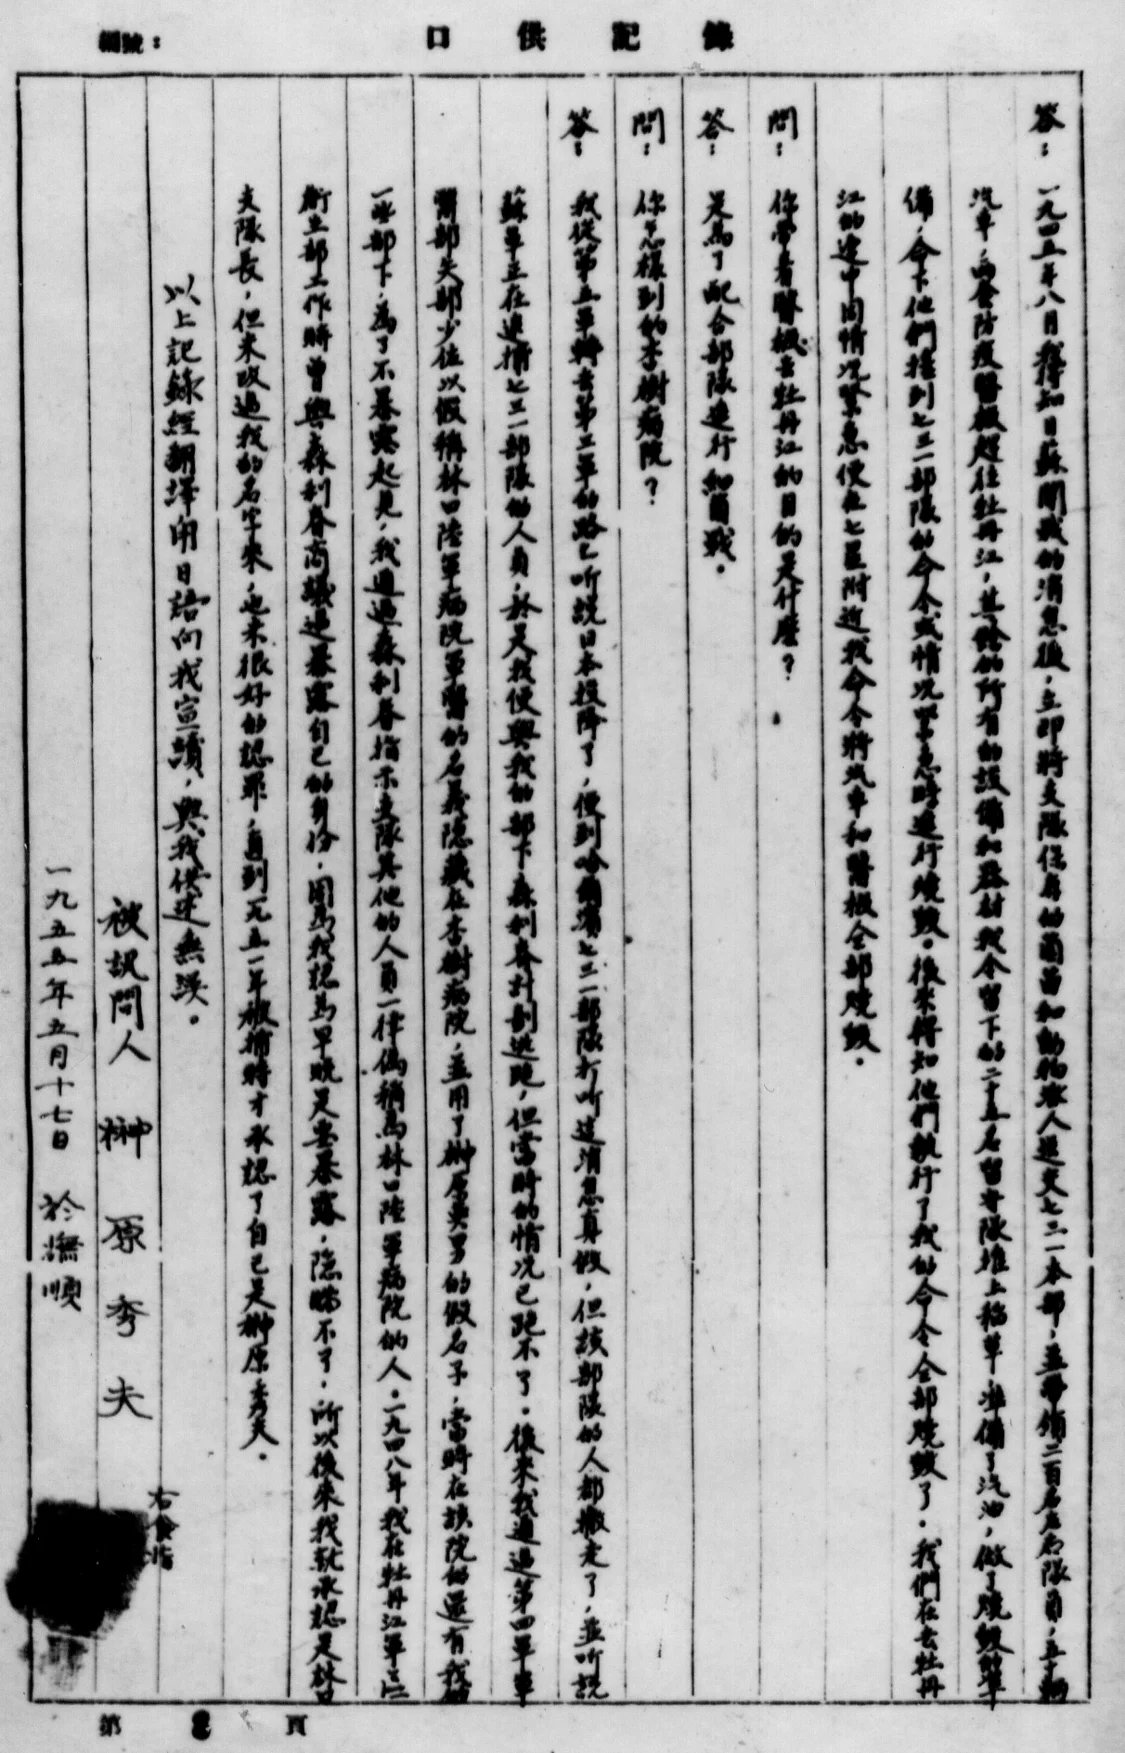 口供記錄
編號：
答：一九四五年八月我得知日蘇開戰的消息後，立即將支隊保有的菌苗和動物派人送交七三一本部，並帶領二百名左右隊員，五十輛
汽車，內登防疫醫報趕往牡丹江，其餘的所有的設備和器材我令留下的二十五名留守隊堆上稻草，准備了汽油，做了燒毀的準
備，令下他們接到七三一部隊的命令或情況緊急時進行燒毀。後來得知他們執行了我的命令全部燒毀了。我們在去牡丹
江的途中因情況緊急便在七星附近我命令將汽車和醫報全部燒毀。
問：你帶着醫報去牡丹江的目的是什麼？
答：是為了配合部隊進行細菌戰。
問：你怎樣到的李樹病院？
答：我從第五軍轉去第三軍的路上听說日本投降了，便到哈爾濱七三一部隊打听這消息真假，但該部隊的人都撤走了，並听說
蘇軍正在追捕七三一部隊的人員，於是我便與我的部下森利春計劃逃跑，但當時的情況已跑不了。後來我通過第四軍軍
醫部矢部少佐以假稱林口陸軍病院軍醫的名義隱藏在李樹病院，並用了榊原英男的假名子，當時在該院的還有我的
一些部下，為了不暴露起見，我通過森利春指示支隊其他的人員一律偽稱為林口陸軍病院的人。一九四八年我在牡丹江軍區
衛生部工作時曾與森利春商議過暴露自己的身份，因為我認為早晚是要暴露，隱瞞不了，所以後來我就承認是林口
支隊長，但未改過我的名字來，也未很好的認罪，直到一九五一年被捕時才承認了自己是榊原秀夫。
以上記錄經翻譯用日語向我宣讀，與我供述無誤。
被訊問人 榊原秀夫
右食指
一九五五年五月十七日 於撫順
第 2 頁